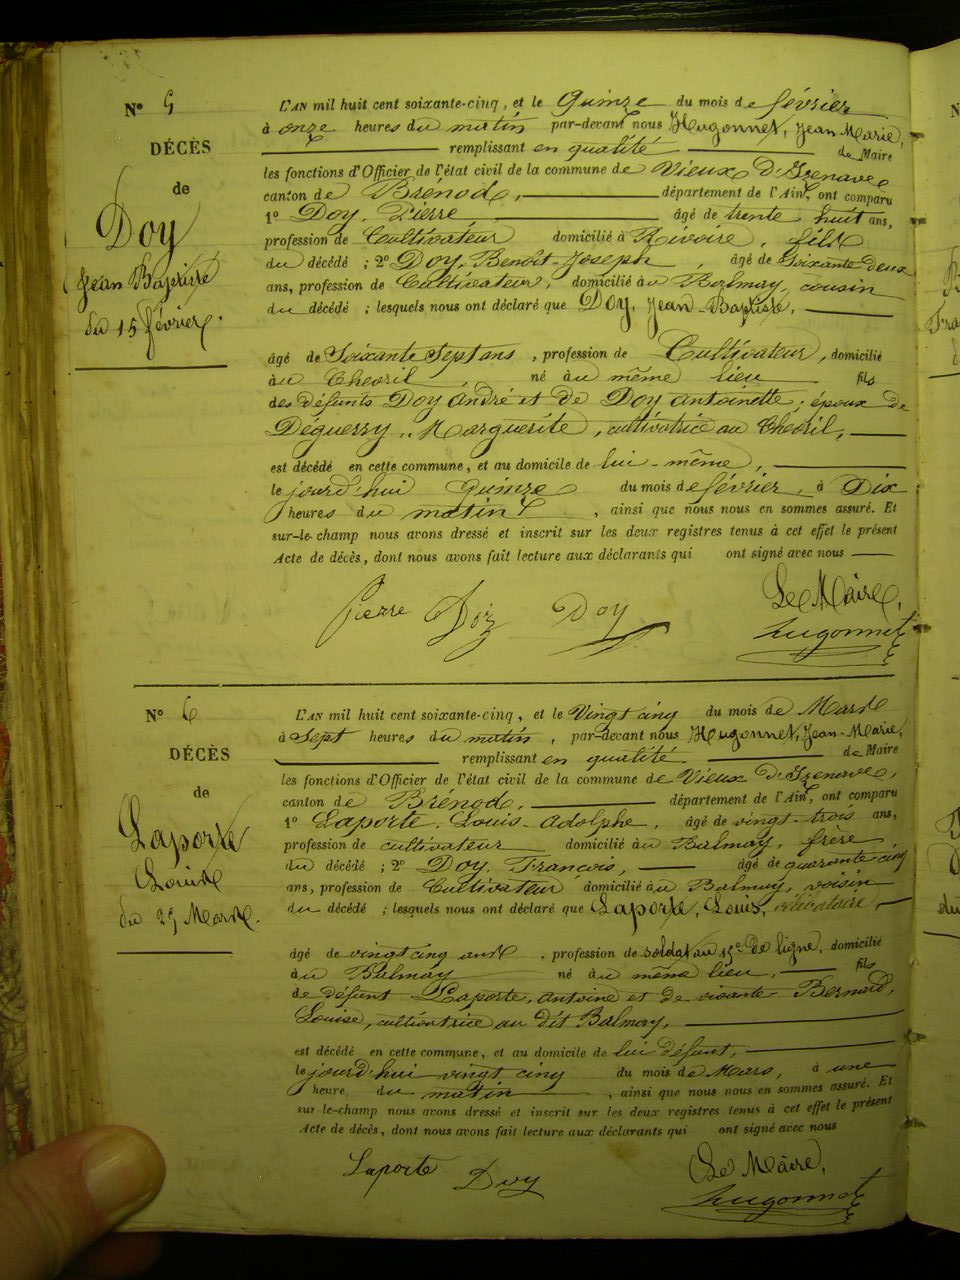 N° 5
DÉCÈS
de
Doy
Jean Baptiste
du 15 février.
L'AN mil huit cent soixante-cinq, et le Quinze du mois de février
à onze heures du matin par-devant nous Hugonnet, Jean Marie,
remplissant en qualité de Maire
les fonctions d'Officier de l'état civil de la commune de Vieux d'Izenave
canton de Brénod, département de l'Ain, ont comparu
1° Doy, Pierre, âgé de trente huit ans,
profession de Cultivateur domicilié à Rivoire, fils
du décédé ; 2° Doy, Benoît-Joseph, âgé de soixante deux
ans, profession de Cultivateur, domicilié au Balmay, cousin
du décédé ; lesquels nous ont déclaré que Doy, Jean-Baptiste,
âgé de Soixante Sept ans, profession de Cultivateur, domicilié
au Chevril, né au même lieu fils
des défunts Doy André et de Doy Antoinette; époux de
Déguerry, Marguerite, cultivatrice au Chevril,
est décédé en cette commune, et au domicile de lui-même,
le jourd'hui quinze du mois de février, à Dix
heures du matin, ainsi que nous nous en sommes assuré. Et
sur-le-champ nous avons dressé et inscrit sur les deux registres tenus à cet effet le présent
Acte de décès, dont nous avons fait lecture aux déclarants qui ont signé avec nous
Pierre Doy Doy Le Maire,
hugonnet
N° 6
DÉCÈS
de
Laporte
Louis
du 25 Mars.
L'AN mil huit cent soixante-cinq, et le Vingt cinq du mois de Mars
à Sept heures du matin, par-devant nous Hugonnet, Jean-Marie,
remplissant en qualité de Maire
les fonctions d'Officier de l'état civil de la commune de Vieux d'Izenave,
canton de Brénod, département de l'Ain, ont comparu
1° Laporte, Louis-Adolphe, âgé de vingt-trois ans,
profession de cultivateur domicilié au Balmay, frère
du décédé ; 2° Doy, François, âgé de quarante cinq
ans, profession de Cultivateur domicilié au Balmay, voisin
du décédé ; lesquels nous ont déclaré que Laporte, Louis, célibataire,
âgé de vingt cinq ans, profession de soldat au 15e de ligne, domicilié
au Balmay né au même lieu, fils
de défunt Laporte, Antoine et de vivante Bernard,
Louise, cultivatrice au dit Balmay,
est décédé en cette commune, et au domicile de lui défunt,
le jourd'hui vingt cinq du mois de Mars, à une
heure du matin, ainsi que nous nous en sommes assuré. Et
sur le-champ nous avons dressé et inscrit sur les deux registres tenus à cet effet le présent
Acte de décès, dont nous avons fait lecture aux déclarants qui ont signé avec nous
Laporte Doy Le Maire,
hugonnet